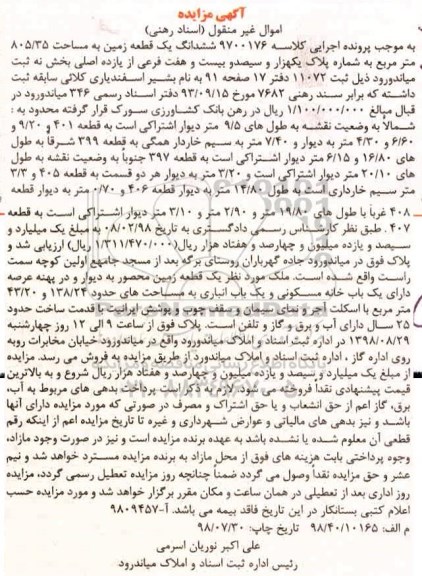 آگهی مزایده
اموال غیر منقول (اسناد رهنی)
به موجب پرونده اجرایی کلاسه ۹۷۰۰۱۷۶ ششدانگ یک قطعه زمین به مساحت ۸۰۵/۳۵
متر مربع به شماره پلاک یکهزار و سیصدو بیست و هفت فرعی از یازده اصلی بخش نه ثبت
میاندورود ذیل ثبت ۱۱۰۷۲ دفتر ۱۷ صفحه ۹۱ به نام بشیر اسفندیاری کلائی سابقه ثبت
داشته که برابر سند رهنی ۷۶۸۲ مورخ ۹۳/۰۹/۱۵ دفتر اسناد رسمی ۳۴۶ میاندورود در
قبال مبالغ ۱/۱۰۰/۰۰۰/۰۰۰ ریال در رهن بانک کشاورزی سورک قرار گرفته محدود به :
شمالاً به وضعیت نقشه به طول های ۹/۵ متر دیوار اشتراکی است به قطعه ۴۰۱ و ۹/۲۰ و
۶/۶۰ و ۴/۳۰ متر به دیوار و ۷/۴۰ متر به سیم خاردار همگی به قطعه ۳۹۹ شرقا به طول
های ۱۶/۸۰ و ۶/۱۵ متر دیوار اشتراکی است به قطعه ۳۹۷ جنوباً به وضعیت نقشه به طول
های ۲۰/۱۰ متر دیوار اشتراکی است و ۳/۲۰ متر به دیوار هر دو قسمت به قطعه ۴۰۵ و ۳/۳
متر سیم خارداری است به طول ۱۴/۸۰ متر به دیوار قطعه ۴۰۶ و ۰/۷۰ متر به دیوار قطعه
۴۰۸ غربا با طول های ۱۹/۸۰ متر و ۲/۹۰ متر و ۳/۱۰ متر دیوار اشتراکی است به قطعه
۴۰۷ . طبق نظر کارشناس رسمی دادگستری به تاریخ ۰۸/۰۲/۹۸ به مبلغ یک میلیارد و
سیصد و یازده میلیون و چهارصد و هفتاد هزار ریال(۱/۳۱۱/۴۷۰/۰۰۰ ریال) ارزیابی شد و
پلاک فوق در میاندورود جاده گهرباران روستای برگه بعد از مسجد جامع اولین کوچه سمت
راست واقع شده است. ملک مورد نظر یک قطعه زمین محصور به دیوار و در پهنه عرصه
دارای یک باب خانه مسکونی و یک باب انباری به مساحت های حدود ۱۳۸/۲۴ و ۴۳/۲۰
متر مربع با اسکلت آجر و نمای سیمان و سقف چوب و پوشش ایرانیت با قدمت ساخت حدود
۲۵ سال دارای آب و برق و گاز و تلفن است. پلاک فوق از ساعت ۹ الی ۱۲ روز چهارشنبه
۱۳۹۸/۰۸/۲۹ در اداره ثبت اسناد و املاک میاندورود واقع در میاندورود خیابان مخابرات روبه
روی اداره گاز ، اداره ثبت اسناد و املاک میاندورد از طریق مزایده به فروش می رسد. مزایده
از مبلغ یک میلیارد و سیصد و یازده میلیون و چهارصد و هفتاد هزار ریال شروع و به بالاترین
قیمت پیشنهادی نقداً فروخته می شود. لازم به ذکر است پرداخت بدهی های مربوط به آب،
برق، گاز اعم از حق انشعاب و یا حق اشتراک و مصرف در صورتی که مورد مزایده دارای آنها
باشد و نیز بدهی های مالیاتی و عوارض شهرداری و غیره تا تاریخ مزایده اعم از اینکه رقم
قطعی آن معلوم شده یا نشده باشد به عهده برنده مزایده است و نیز در صورت وجود مازاد،
وجوه پرداختی بابت هزینه های فوق از محل مازاد به برنده مزایده مسترد خواهد شد و نیم
عشر و حق مزایده نقداً وصول می گردد ضمناً چنانچه روز مزایده تعطیل رسمی گردد، مزایده
روز اداری بعد از تعطیلی در همان ساعت و مکان مقرر برگزار خواهد شد و مورد مزایده حسب
اعلام کتبی بستانکار در این تاریخ فاقد بیمه می باشد. آ-۹۸۰۹۴۵۷
م الف: ۹۸/۴۰/۱۰۱۶۵ تاریخ چاپ: ۹۸/۰۷/۳۰
علی اکبر نوریان اسرمی
رئیس اداره ثبت اسناد و املاک میاندرود